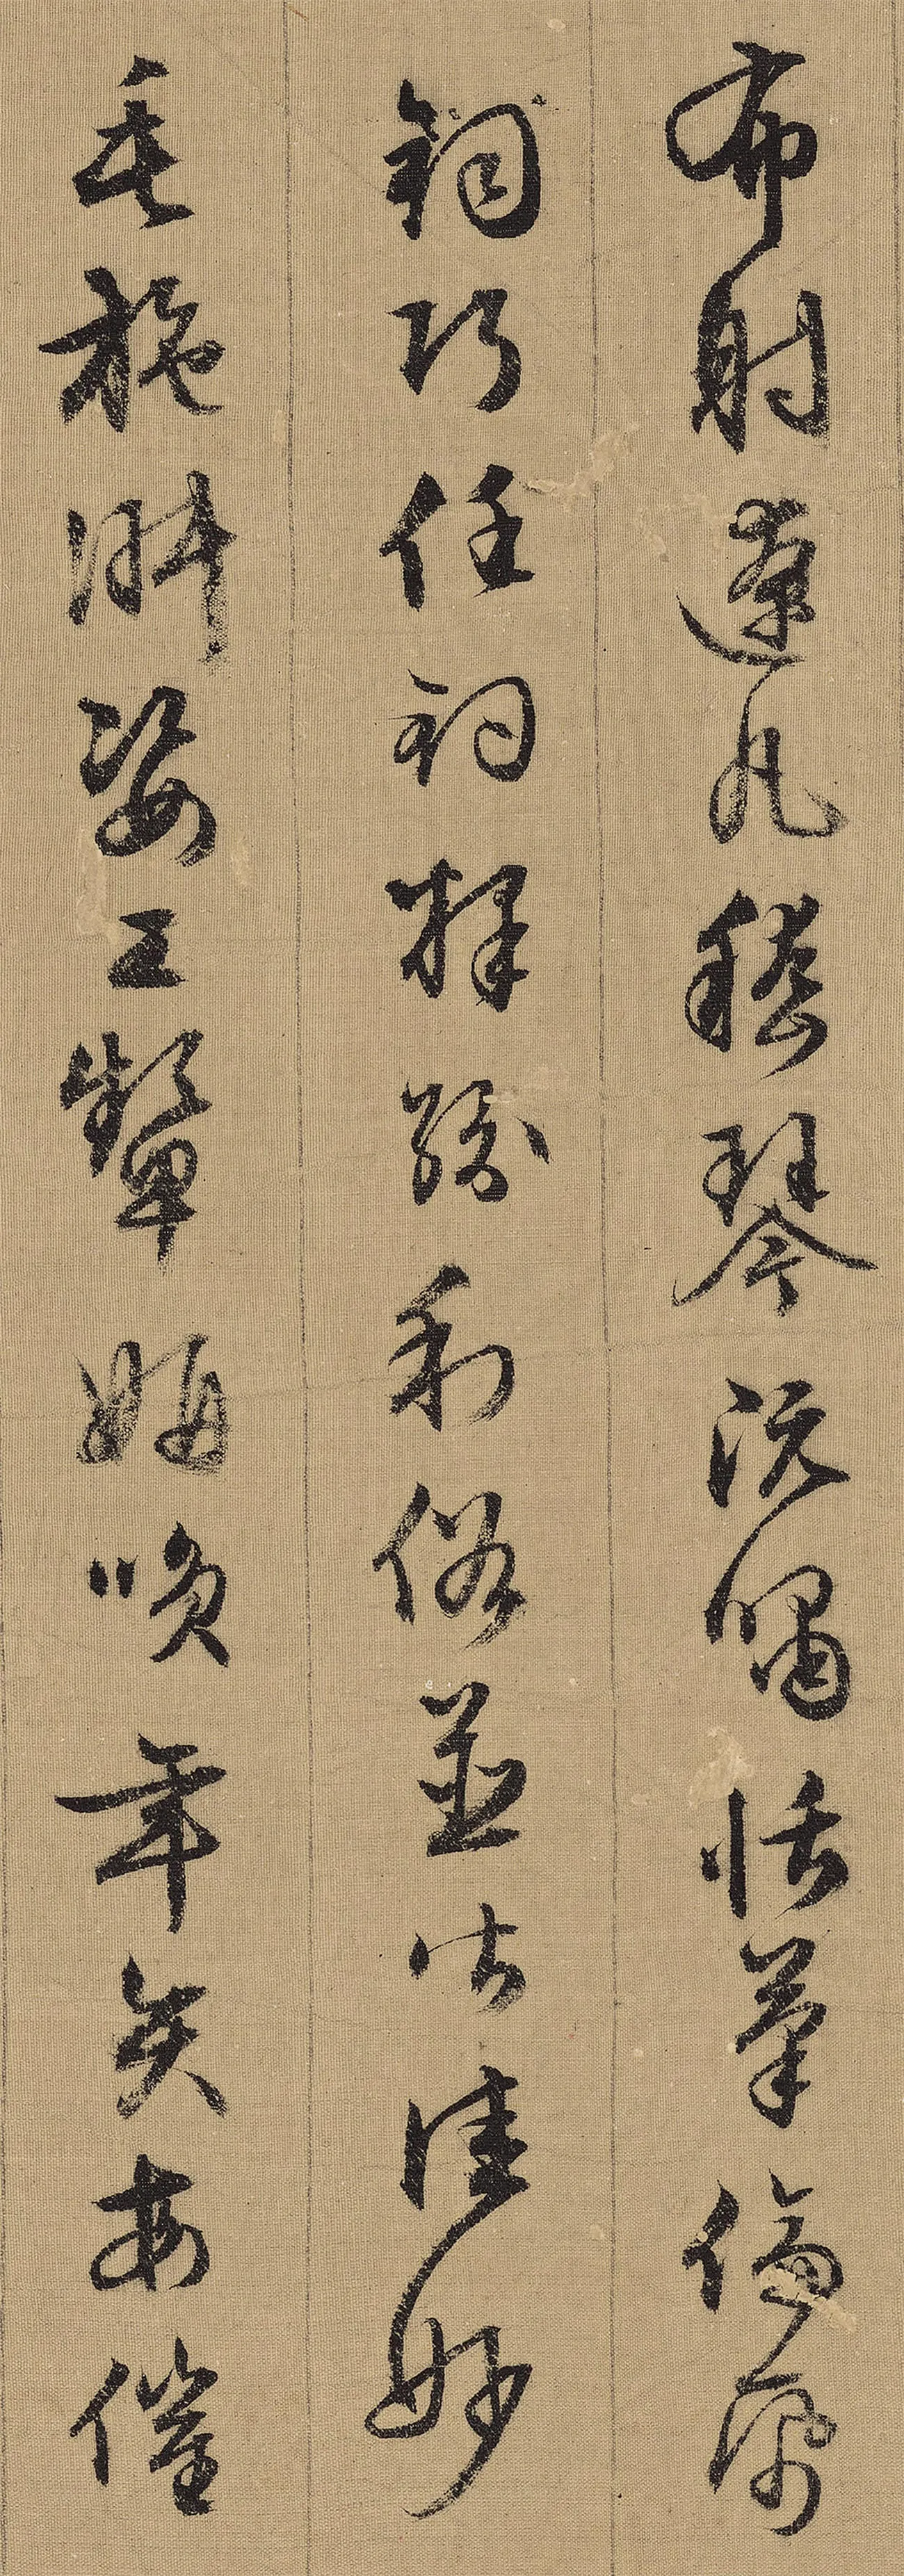 布射遼丸嵇琴阮嘯恬筆倫帋
鈞巧任釣釋紛利俗並皆佳妙
毛施淑姿工顰妍咲年矢每催